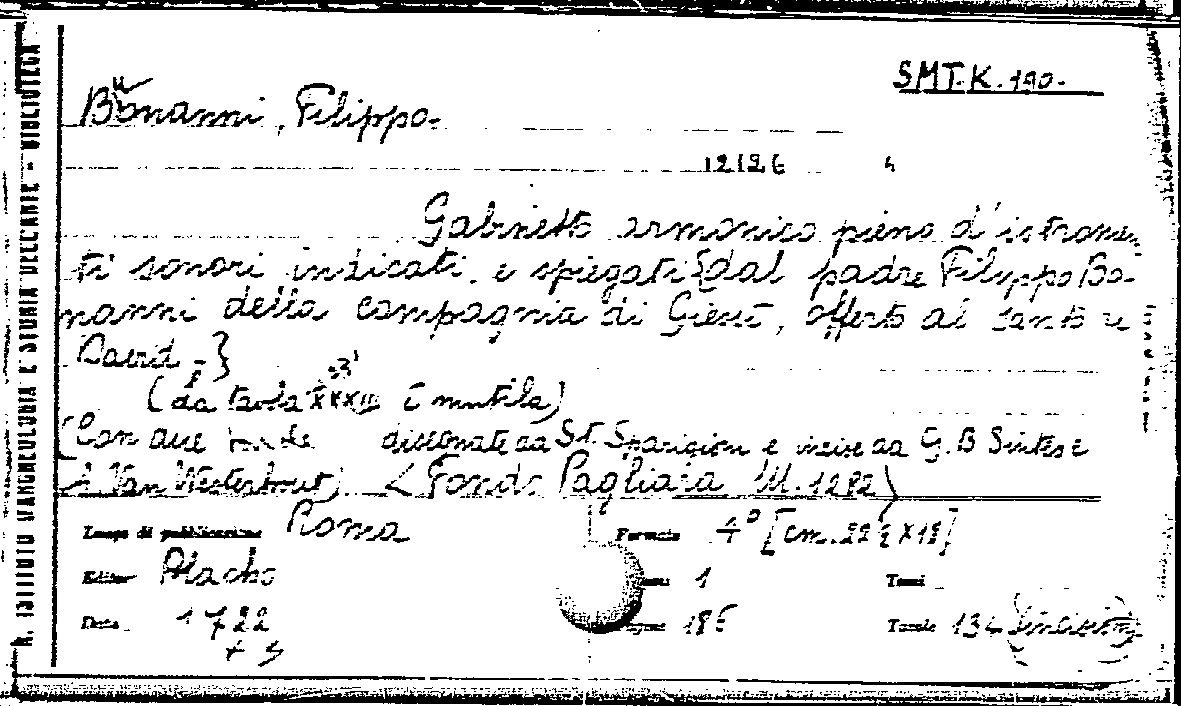 SMT. K. 190.
Buonanni, Filippo.
12126 4
Gabinetto armonico pieno d'istromen
ti sonori indicati, e spiegati {dal padre Filippo Bo-
nanni della compagnia di Giesù, offerto al santo re
David.}
(la tavola XXXIII è mutila)
(Con due disegnate da St. Sparigion e incise da G. B Sintes e
A. Van Westerhout) (Fondo Pagliara M. 1282)
Luogo di pubblicazione Roma
Formato 4° [cm. 22 ½ X 18]
Editore Placho
1
Tomi
Data 1722
Pagine 186
Tavole 134
R. ISTITUTO D'ARCHEOLOGIA E STORIA DELL'ARTE - BIBLIOTECA